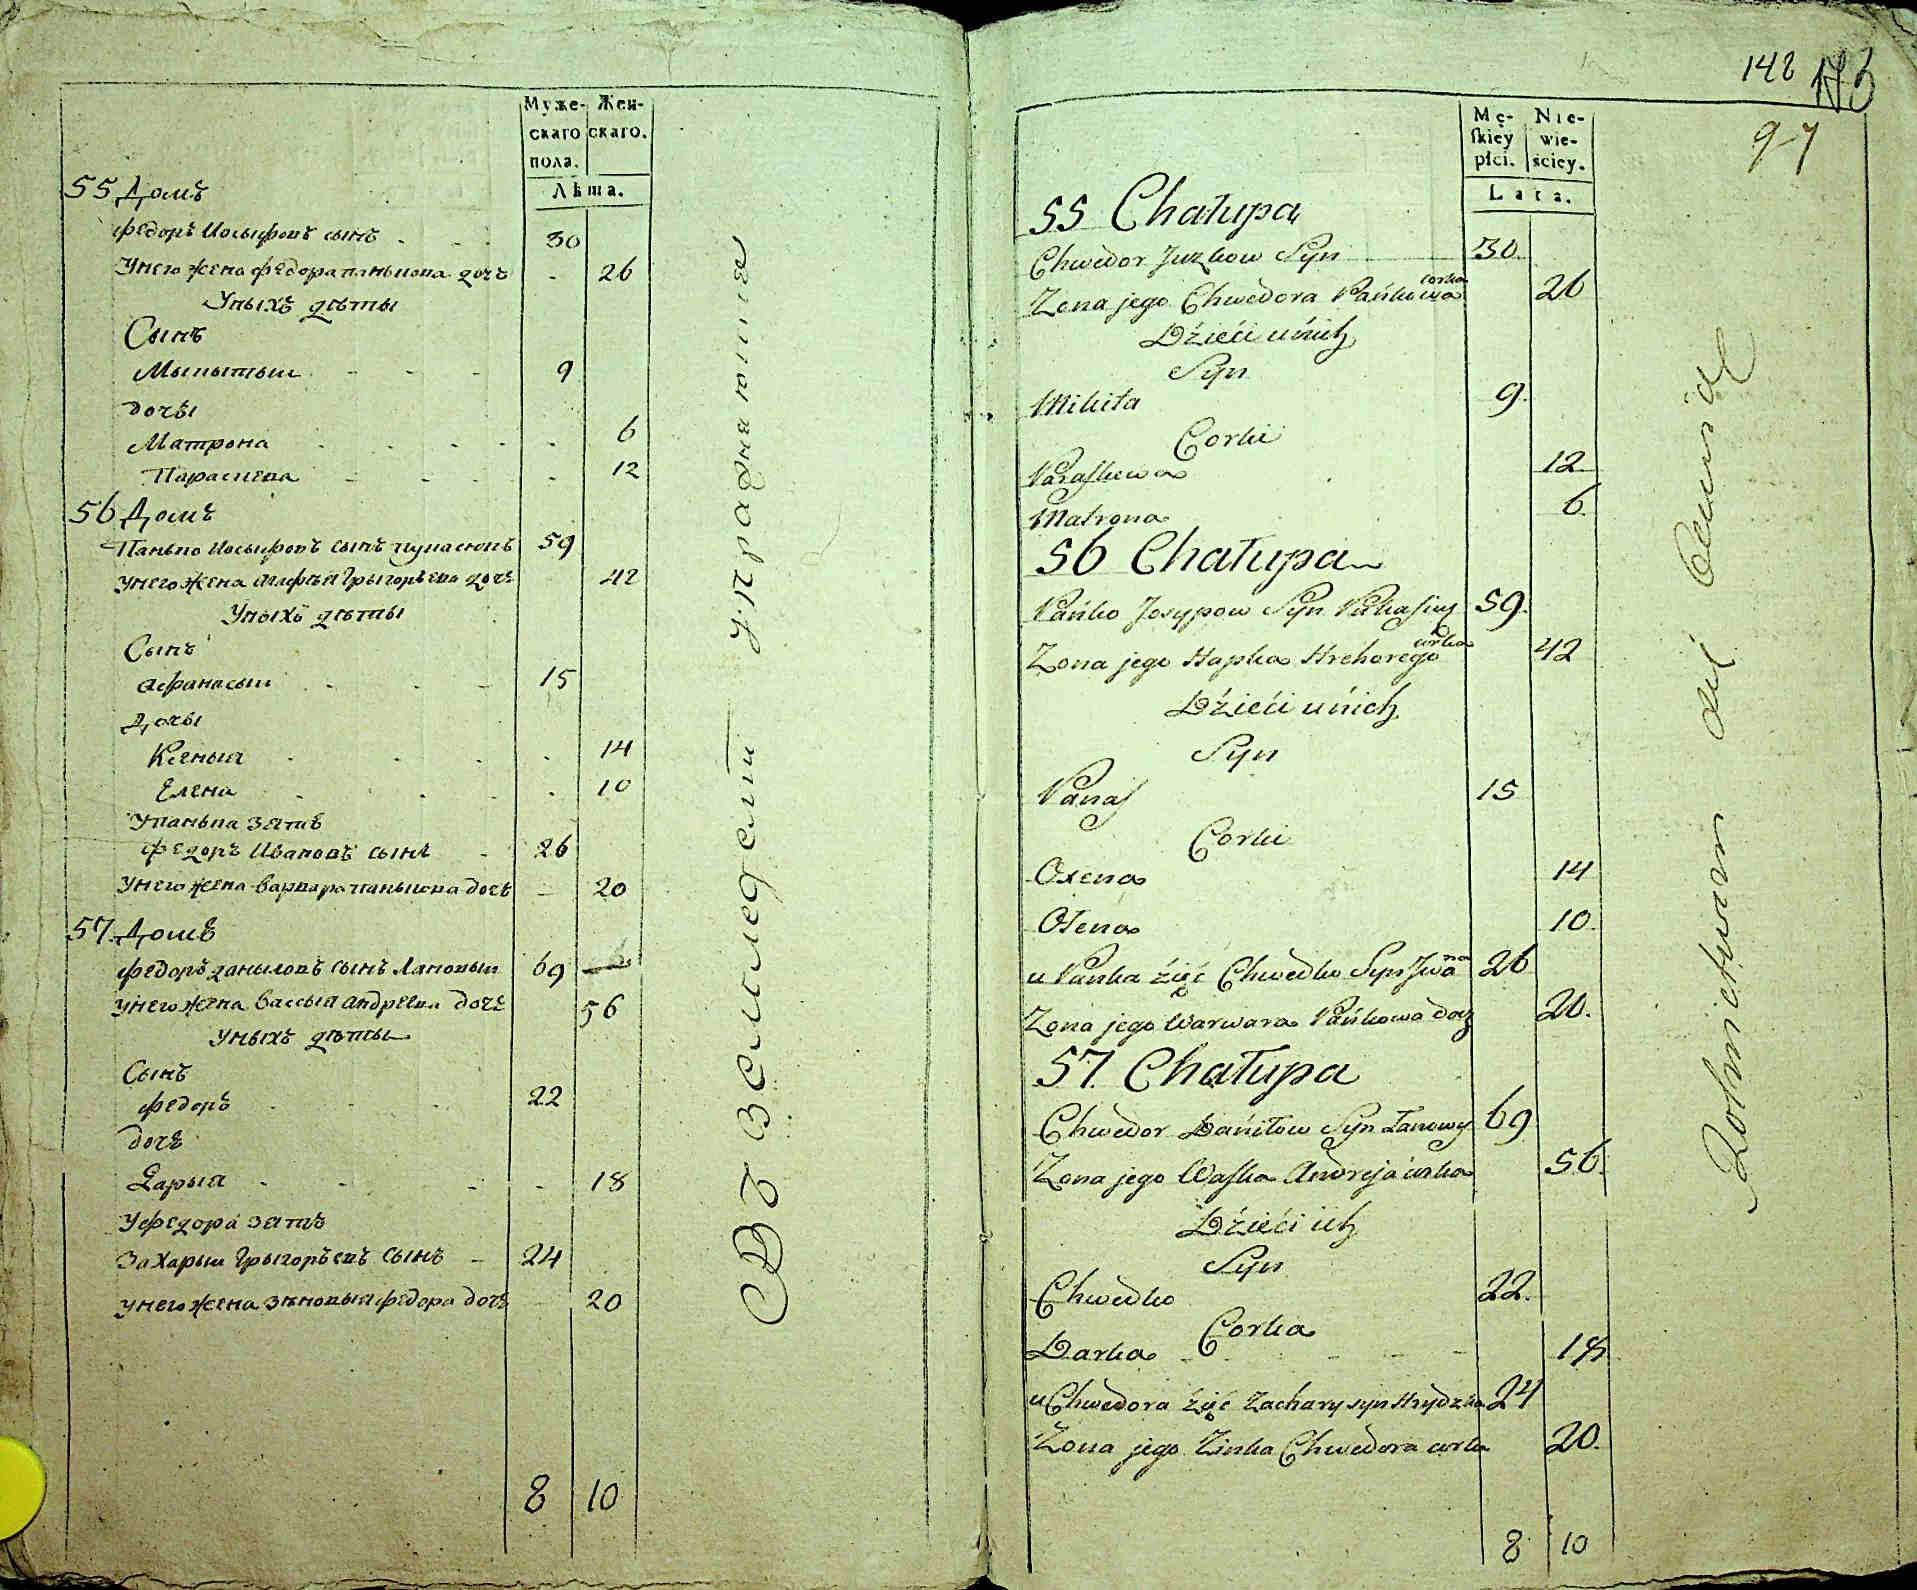 Муже-
скаго
пола.
Жен-
скаго.
Лѣта.
55 Домъ
Федоръ Иосыфовъ сынъ 30
Унего жена Федора панькова дочъ 26
Уныхъ дѣты
Сынъ
Мыкытыи 9
дочѣ
Матрона 6
Параскева 12
56 Домъ
Панько Иосыфовъ сынъ 59
унего жена Григорьева дочъ 42
Уныхъ дѣты
Сынъ
Афанасыи 15
Дочы
Ксенья 14
Елена 10
Упанька зять
Федоръ Ивановъ сынъ 26
Унего жена варвара панькова дочъ 20
57 Домъ
Федоръ даныловъ сынъ Лановыи 69
унего жена Вассыя андреева дочъ 56
Уныхъ дѣты
Сынъ
Федоръ 22
дочъ
Дарыя 18
Уфедора зять
Захарыи Грыгорьевъ сынъ 24
унего жена зѣновыя федора дочъ 20
8 10
Въ земледелии упражняются
148
97
Mę-
skiey
płci.
Nie-
wie-
ściey.
Lata.
55 Chałupa
Chwedor Juzkow Syn 30.
Zona jego Chwedora Pańkowa corka 26
Dźieći u nich
Syn
Mikita 9.
Corki
Paraskewa 12
Matrona 6.
56 Chałupa
Pańko Josypow Syn 59.
Zona jego Hapka Hrehorego curka 42
Dźieći u nich
Syn
Panas 15
Corki
Oxena 14
Ołena 10.
u Pańka źięć Chwedko Syn Jwana 26
Zona jego Warwara Pańkowa doc 20.
57. Chałupa
Chwedor Daniłow Syn Łanowy 69
Zona jego Waska Andreja curka 56.
Dźieći ich
Syn
Chwedko 22.
Corka
Darka 18
u Chwedora źięć Zachary syn Hrydzka 24
Zona jego Zinka Chwedora corka 20.
8 10
Rolnictwem